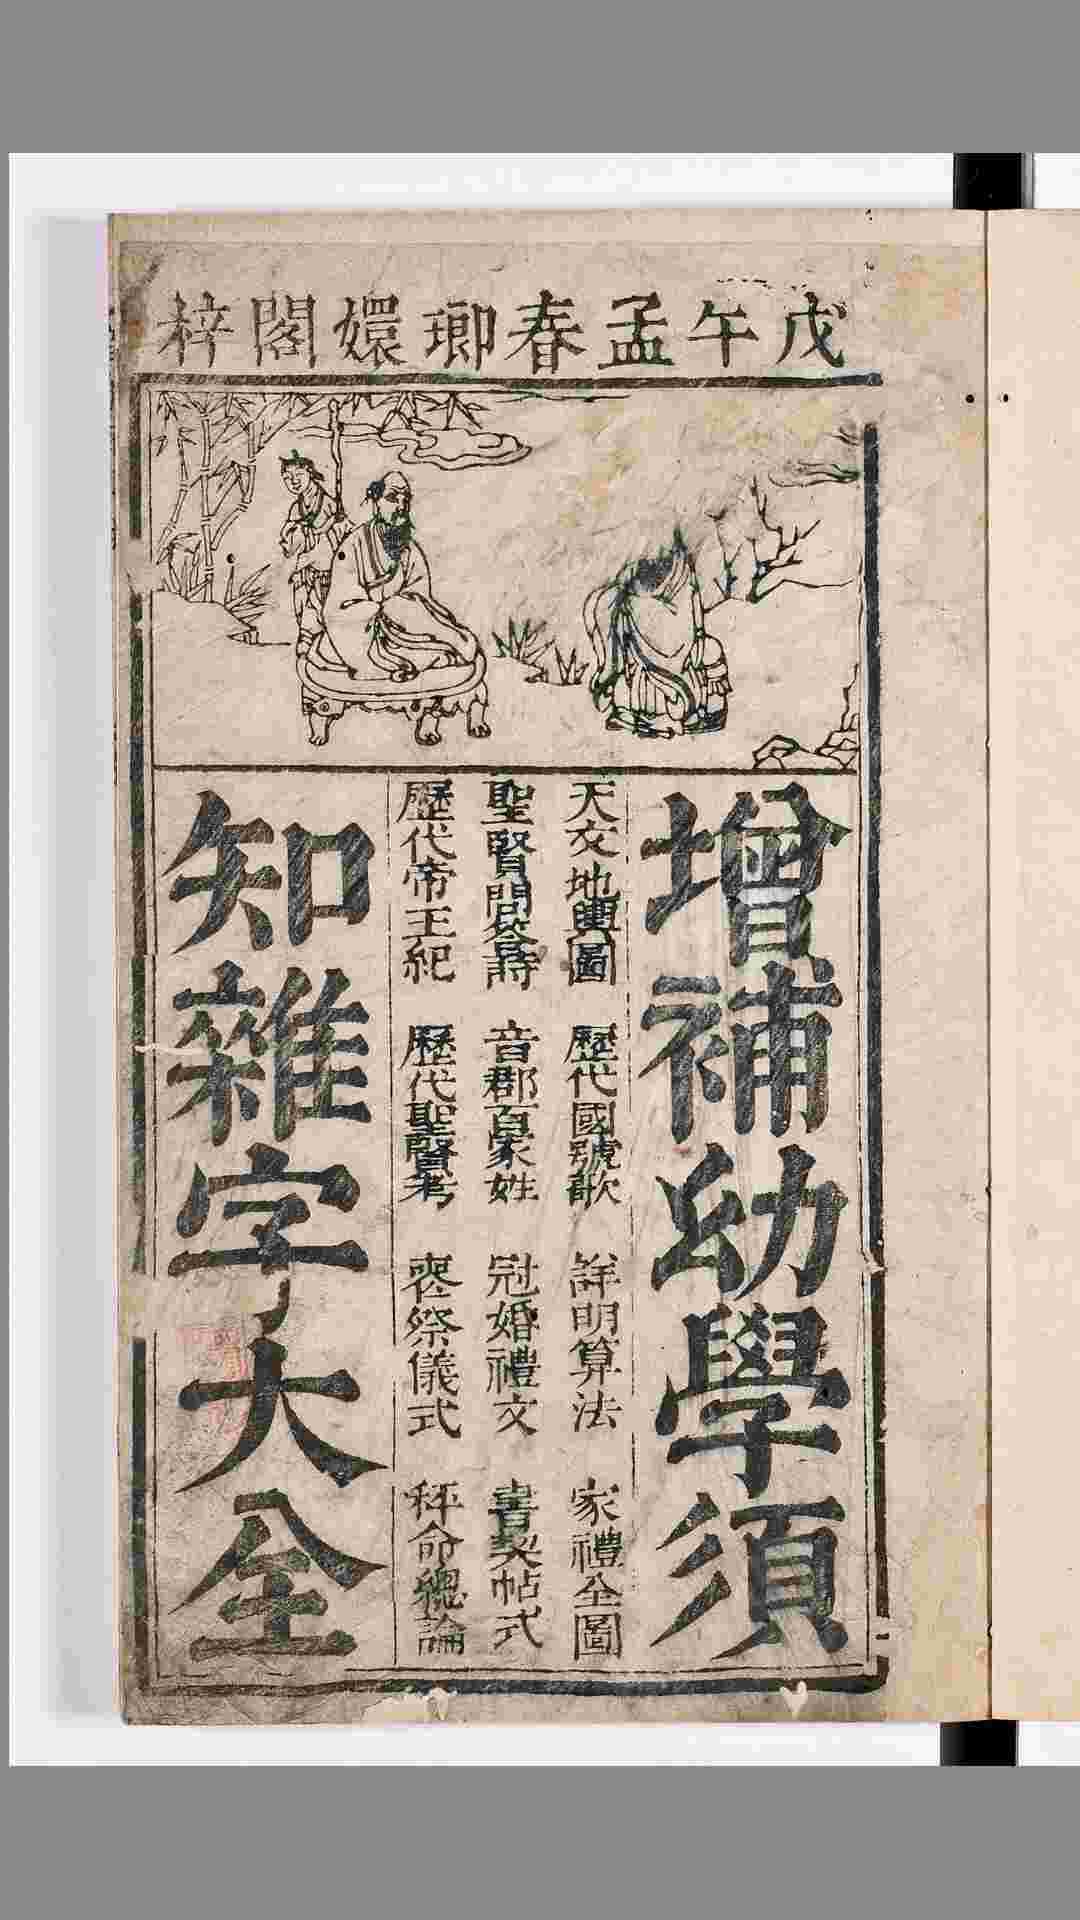 戊午孟春瑯嬛閣梓
增補幼學須
天文地輿圖 歷代國號歌 詳明算法 家禮全圖
聖賢問答詩 音郡百家姓 冠婚禮文 書契帖式
歷代帝王紀 歷代聖賢考 喪祭儀式 秤命總論
知雜字大全